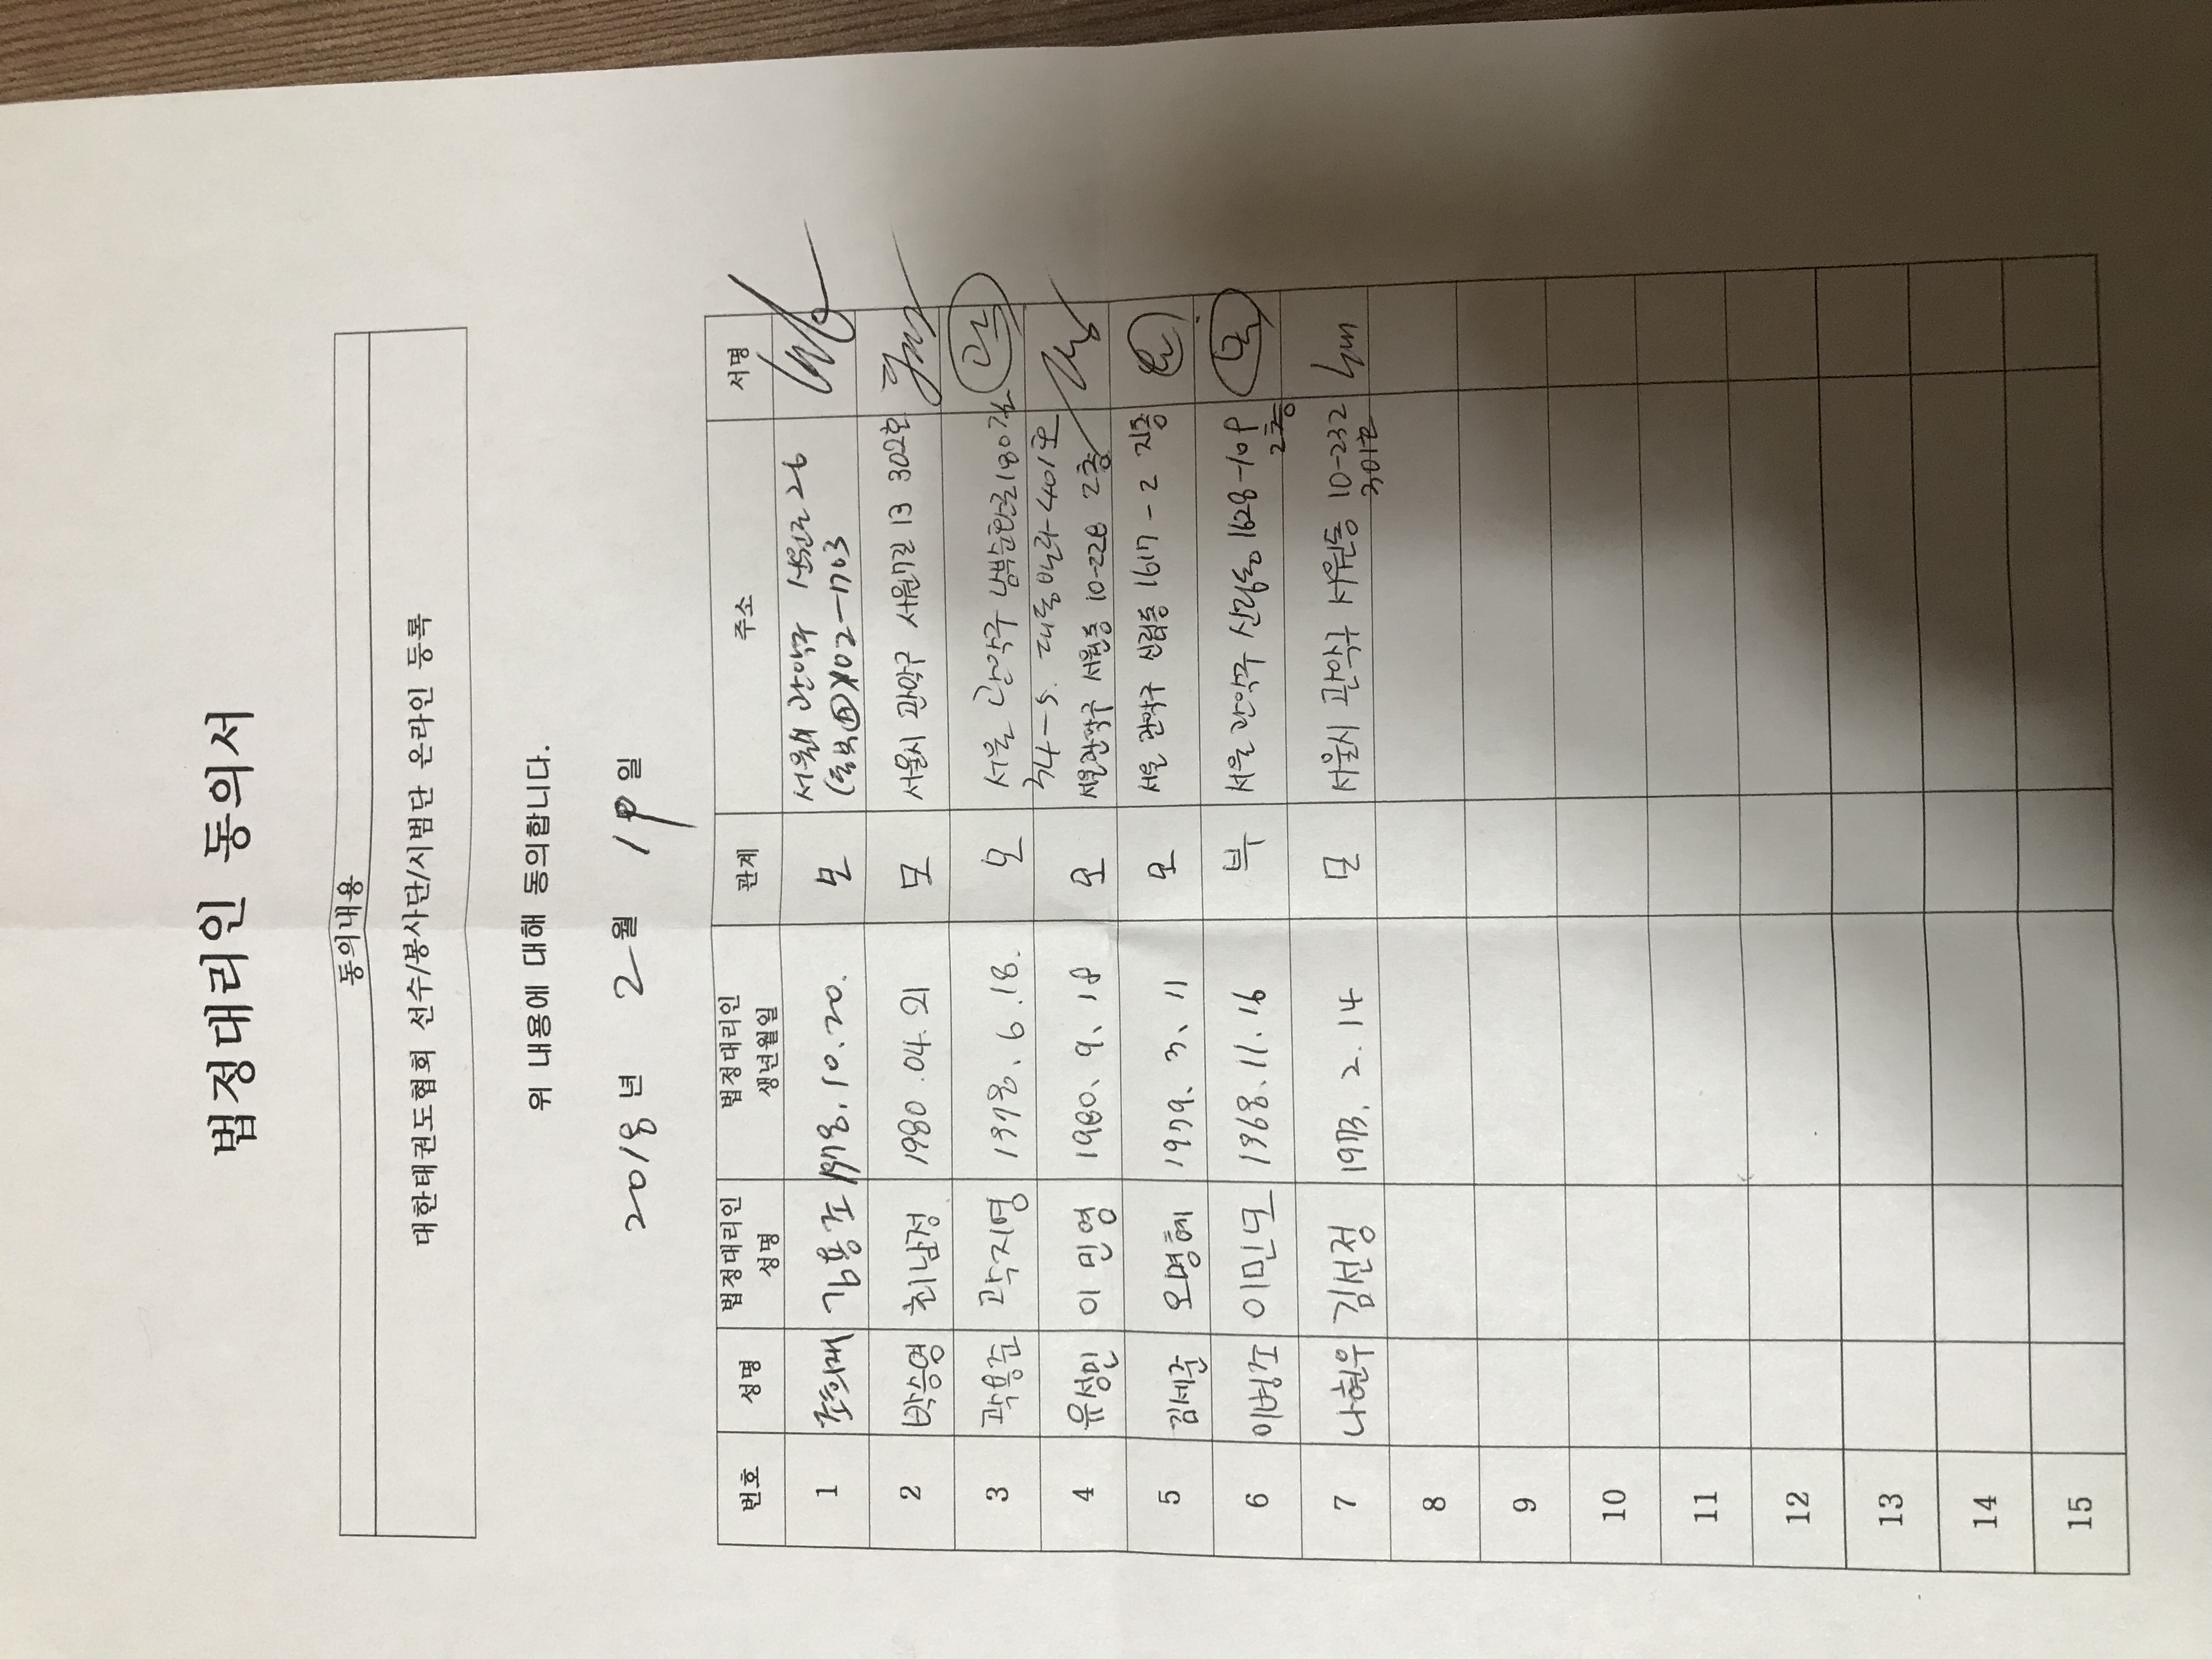 법정대리인 동의서
동의내용
대한태권도협회 선수/봉사단/시범단 온라인 등록
위 내용에 대해 동의합니다.
2018년 2월 19일
번호 성명 법정대리인 성명 법정대리인 생년월일 관계 주소 서명
1 김용조 1978.10.20. 모 서울시 관악구 26
X02-1703
2 박승영 최남정 1980.04.21 모 서울시 관악구 서원7길 13 302호
3 곽용준 곽지영 1978.6.18. 모 서울 관악구 남부순환로180길
34-5. 401호
4 유성민 이민영 1980.9.18 모 서울관악구 서원동 10-228 2층
5 김세준 오명혜 1979.3.11 모 서울 관악구 신림동 1617-2 지층
6 1968.11.16 부 서울 관악구 신림동 1628-109
2층
7 나현우 김선정 1973.2.14 모 서울시 관악구 서원동 10-232
301호
8
9
10
11
12
13
14
15